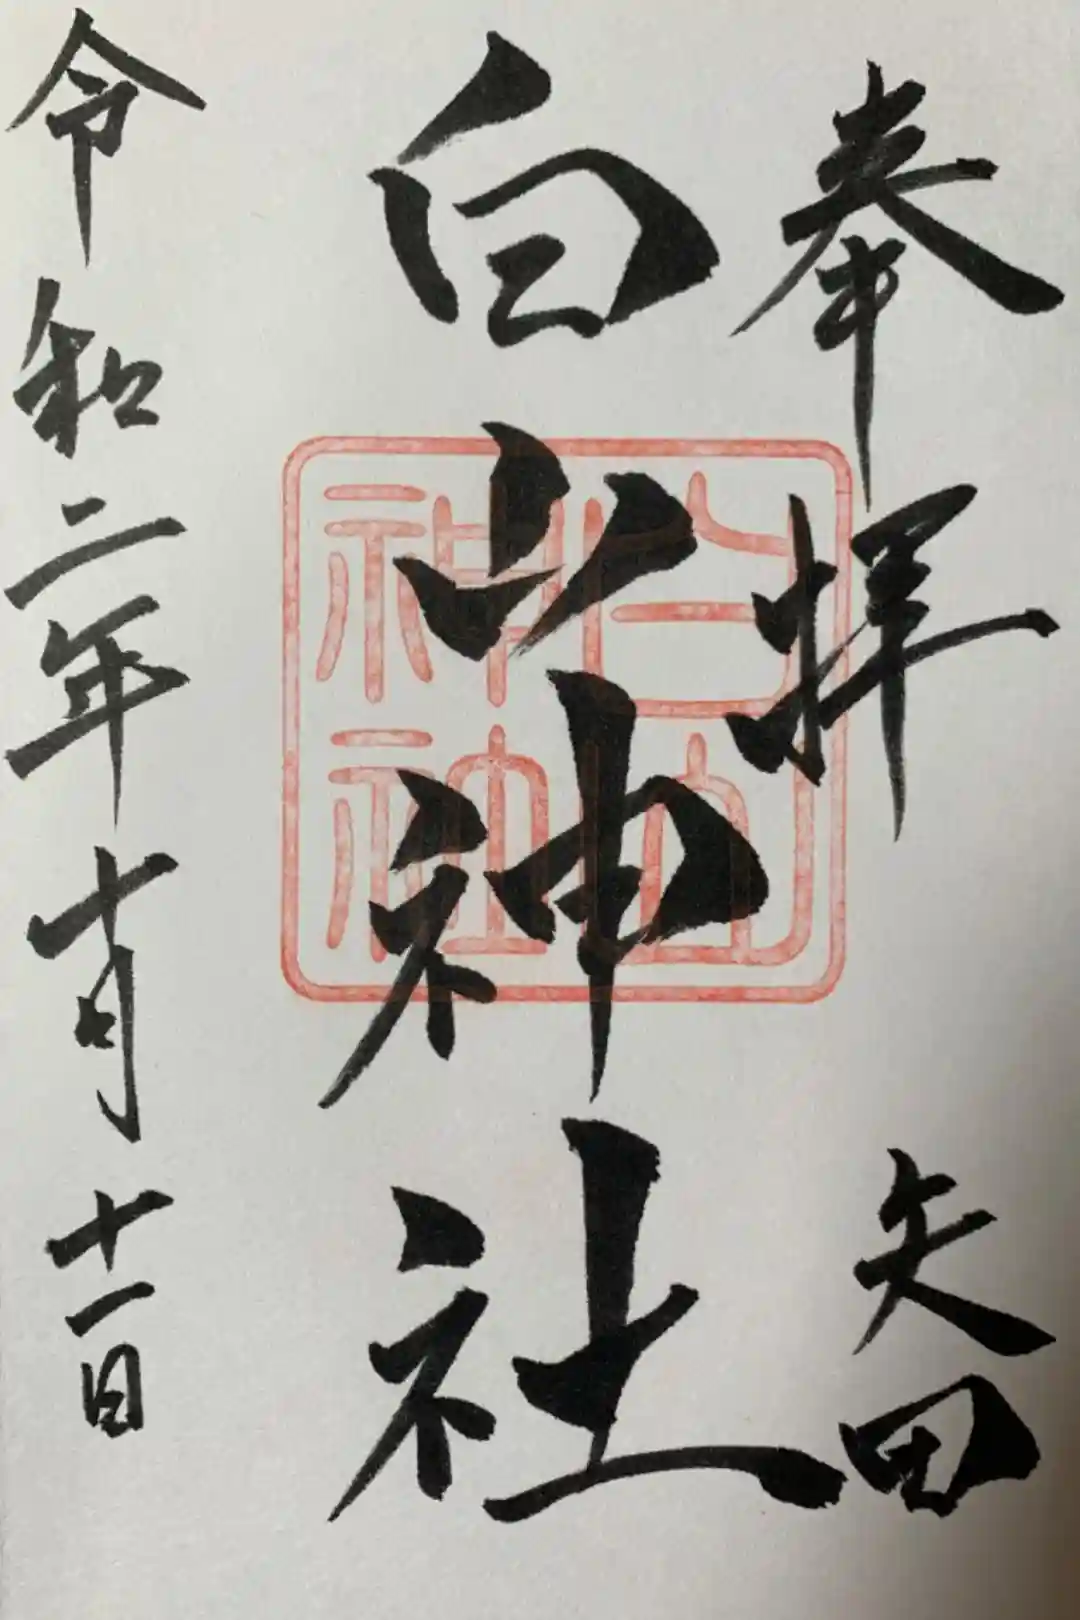 奉拝
矢田
白山神社
令和二年十月十一日
白山
神社